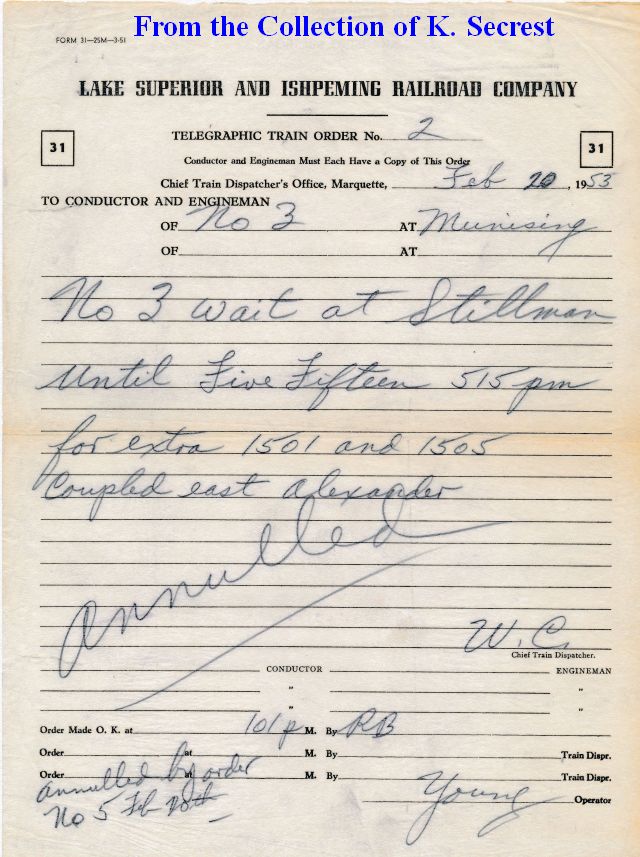 From the Collection of K. Secrest
FORM 31—25M—3-51
LAKE SUPERIOR AND ISHPEMING RAILROAD COMPANY
31
TELEGRAPHIC TRAIN ORDER No. 2
31
Conductor and Engineman Must Each Have a Copy of This Order
Chief Train Dispatcher's Office, Marquette, Feb 20, 1953
TO CONDUCTOR AND ENGINEMAN
OF No 3 AT Munising
OF AT
No 3 wait at Stillman
Until Five Fifteen 515 pm
for extra 1501 and 1505
Coupled east Alexander
Annulled
W. C.
Chief Train Dispatcher.
CONDUCTOR ENGINEMAN
" "
" "
Order Made O. K. at 101 p M. By RB
Order at M. By Train Dispr.
Order at M. By Train Dispr.
Annulled by order
No 5 Feb 20th
Young Operator